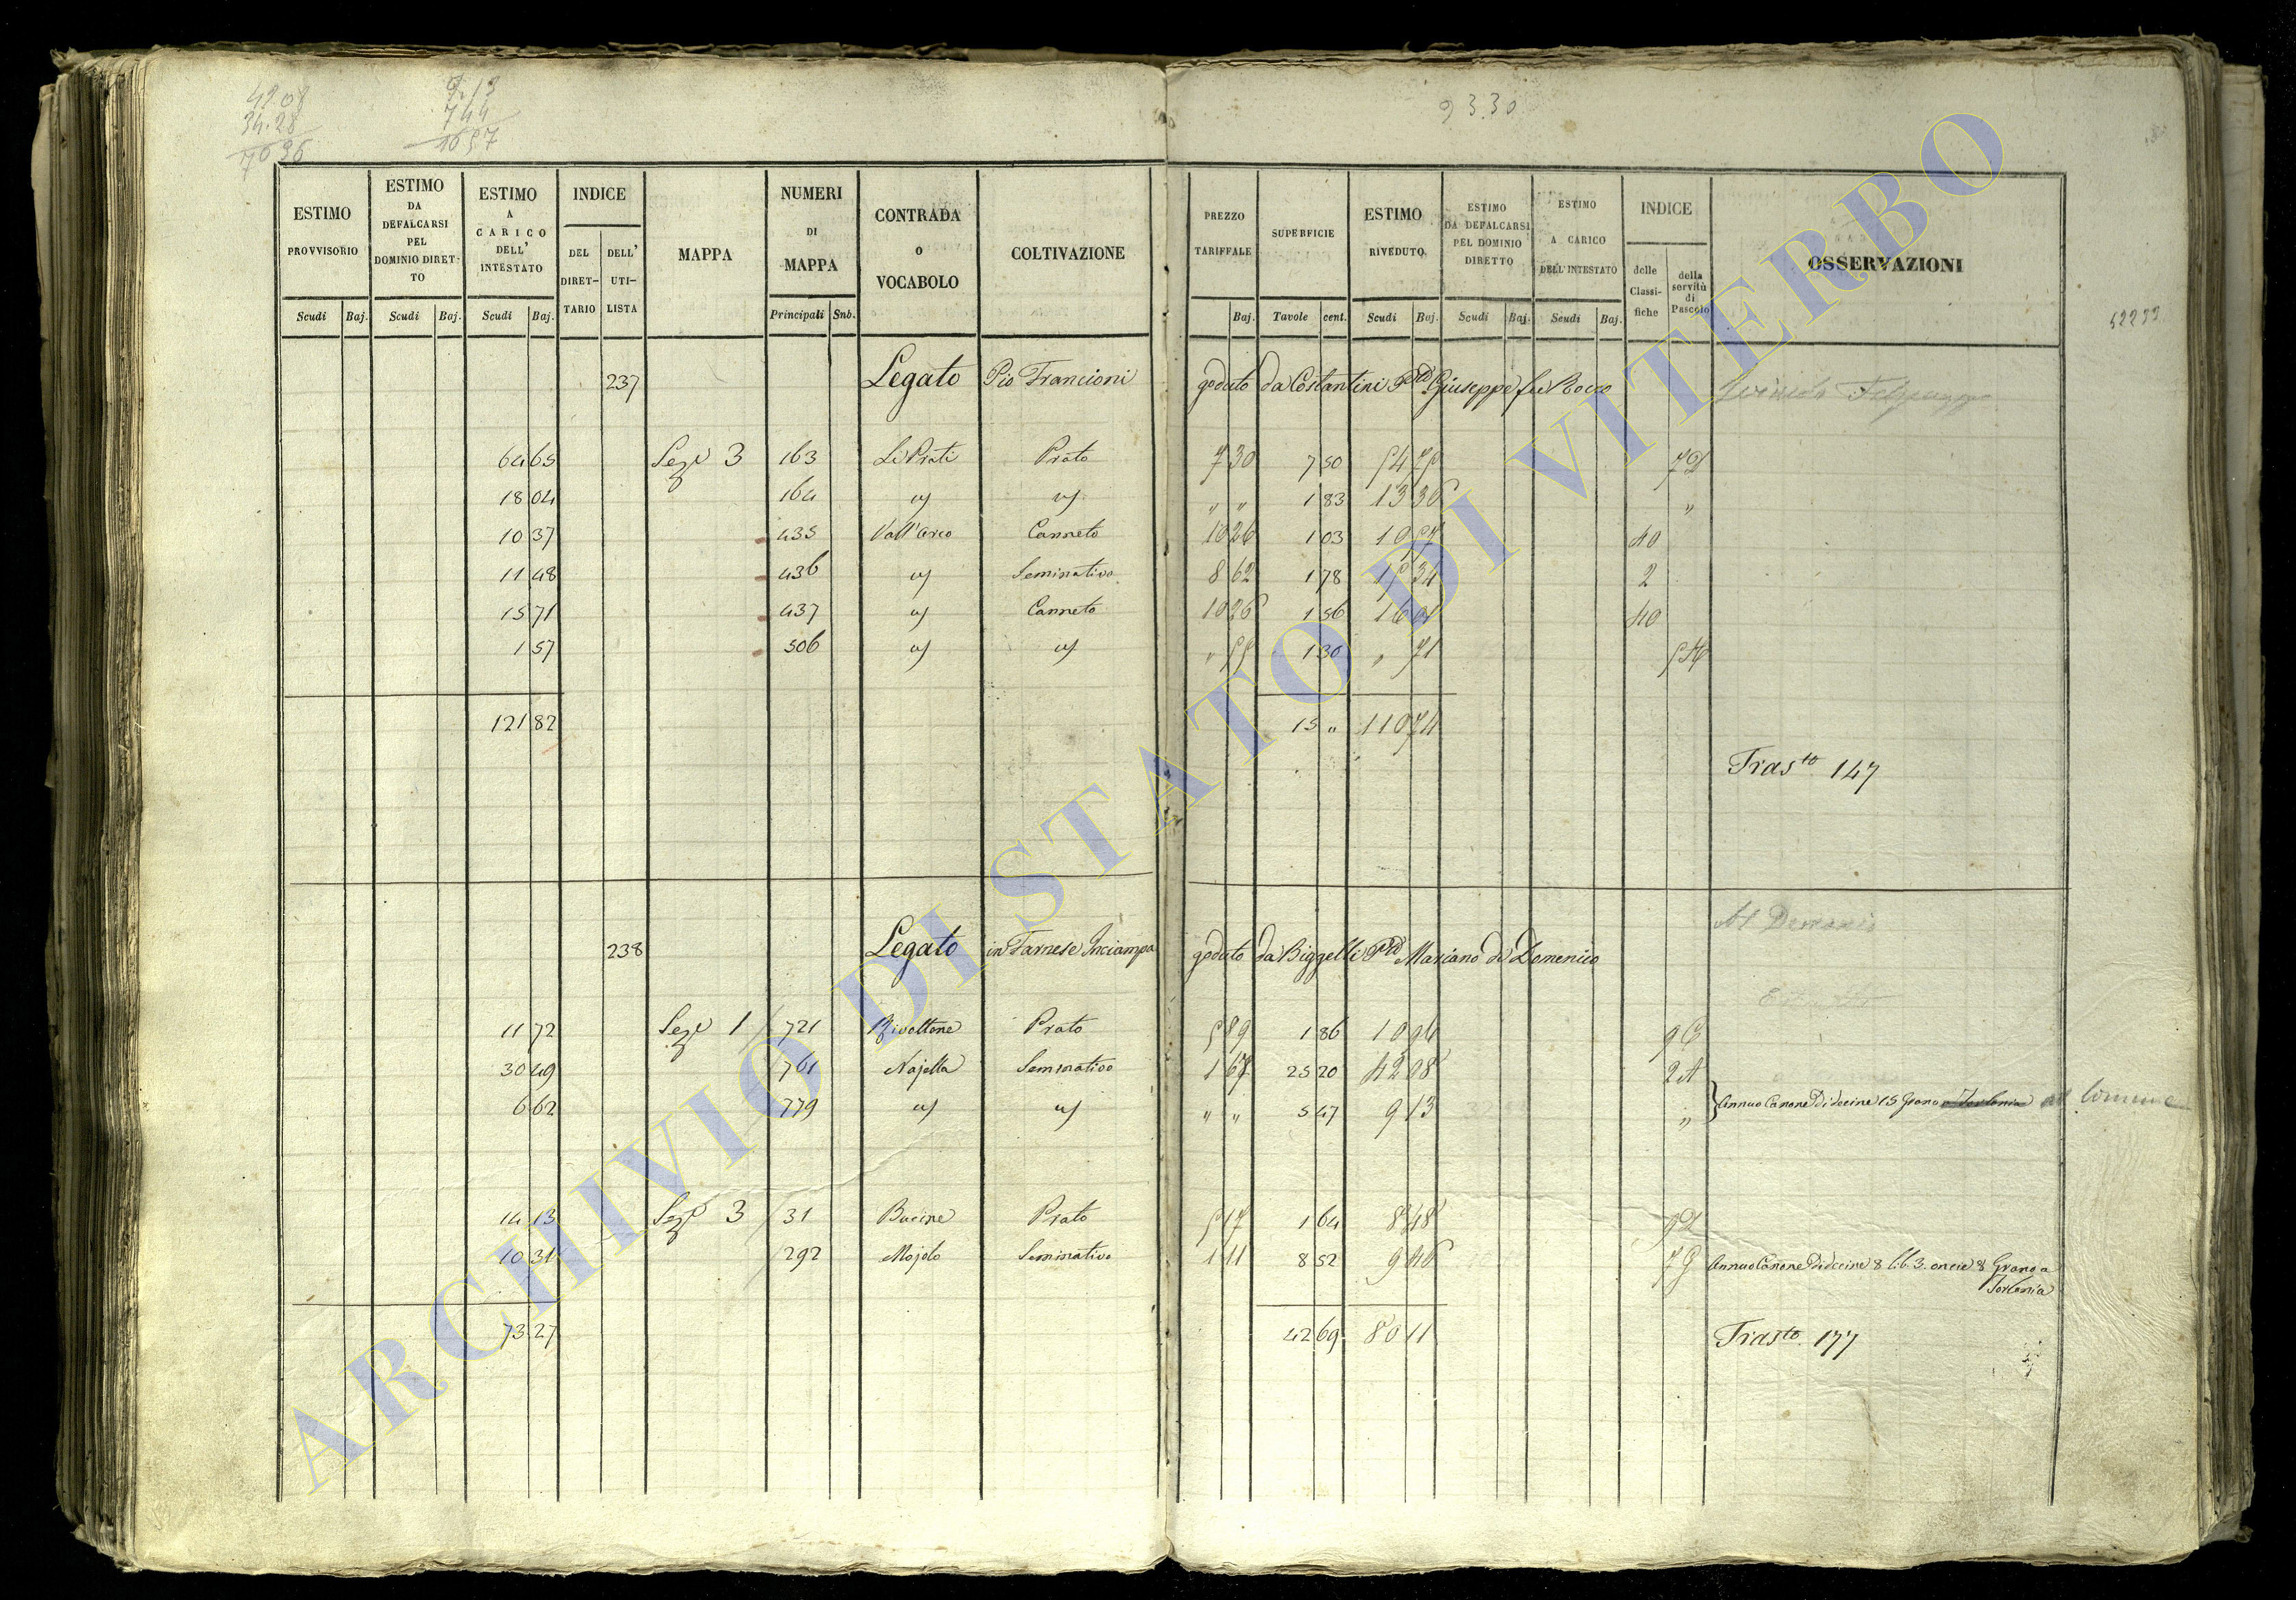 42.08 9.13
34.28 7 44
7636 1657
93.30
ESTIMO PROVVISORIO | ESTIMO DA DEFALCARSI PEL DOMINIO DIRETTO | ESTIMO A CARICO DELL' INTESTATO | INDICE | DEL DIRETTARIO | DELL' UTILISTA | MAPPA | NUMERI DI MAPPA | CONTRADA O VOCABOLO | COLTIVAZIONE | PREZZO TARIFFALE | SUPERFICIE | ESTIMO RIVEDUTO | ESTIMO DA DEFALCARSI PEL DOMINIO DIRETTO | ESTIMO A CARICO DELL'INTESTATO | INDICE | delle Classifiche | della servitù di Pascolo | OSSERVAZIONI
Scudi Baj. Scudi Baj. Scudi Baj. Principali Snb. Baj. Tavole cent. Scudi Baj. Scudi Baj. Scudi Baj.
52233
237 Legato Pio Francioni goduto da Costantini Pte Giuseppe fu Rocco
64 65 Seze 3 163 Li Prati Prato 7 30 7 50 54 75 7D
18 04 164 " " " " 1 83 13 36 "
10 37 435 Vall'arco Canneto 10 26 1 03 10 57 40
11 48 436 " Seminativo 8 62 1 78 15 34 2
15 71 437 " Canneto 10 26 1 56 16 01 40
1 57 506 " " " 55 1 30 " 71
121 82 15 " 110 74
Trasto 147
238 Legato in Farnese Inciampa goduto da Biggelli Pte Mariano di Domenico
11 72 Seze 1 721 Rivoltone Prato 5 89 1 86 10 96
30 49 761 Najella Seminativo 1 67 25 20 42 08 2A
6 62 779 " " " " 5 47 9 13 " Annuo Canone Di decine 15 Grano a Torlonia al Comune
14 13 Seze 3 31 Bucine Prato 5 17 1 64 8 48
10 31 292 Mojolo Seminativo 1 11 8 52 9 46 Annuo Canone Di decine 8 lib. 3. oncie 8 Grano a
Torlonia
73 27 42 69 80 11 Trasto. 177
ARCHIVIO DI STATO DI VITERBO